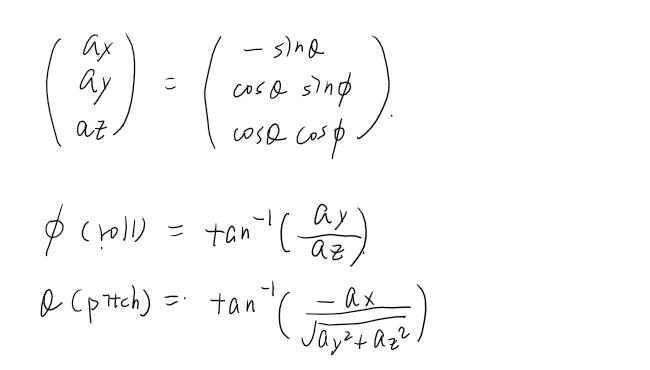 ( ax ) = ( - sinθ )
( ay ) ( cosθ sinϕ )
( az ) ( cosθ cosϕ ).
ϕ (roll) = tan⁻¹( ay / az )
θ (pitch) = tan⁻¹( -ax / √(ay²+az²) )